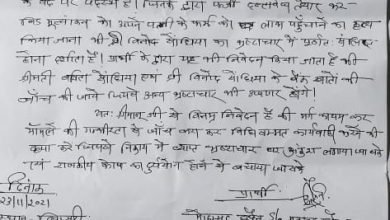 के पद पर पदस्थ है। जिनके द्वारा फर्जी दस्तावेज तैयार कर
का अपने पत्नी के फर्म को लाभ पहुँचाने का कृत्य
किया जाना भी श्री विनोद का भ्रष्टाचार में पूर्णतः संलिप्त
होना दर्शाता है। प्रार्थी के द्वारा यह भी निवेदन किया जाता है की
श्रीमती एवं श्री विनोद के बैंक खातों की
जाँच की जावे जिससे अन्य भ्रष्टाचार भी उजागर होंगे।
अतः श्रीमान जी से विनम्र निवेदन है की
मामले की गम्भीरता से जाँच कर विधिसम्मत कार्यवाही करने की
कृपा करें जिससे विभाग में व्याप्त भ्रष्टाचार पर अंकुश लगाया जा सके
एवं शासकीय कोष का दुरुपयोग होने से बचाया जा सके
दिनांक
प्रार्थी
23/11/2021